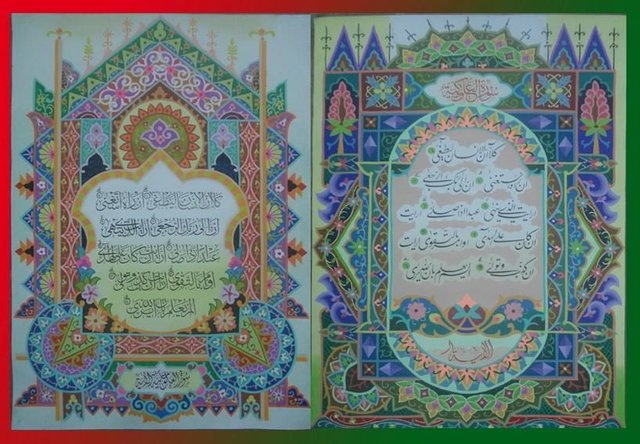 سورة العلق مكية
كلا إن الإنسان ليطغى
أن رآه استغنى إن إلى ربك الرجعى
أرأيت الذي ينهى عبدا إذا صلى أرأيت
إن كان على الهدى أو أمر بالتقوى أرأيت
إن كذب وتولى ألم يعلم بأن الله يرى
كلا إن الإنسان ليطغى أن رآه استغنى
إن إلى ربك الرجعى أرأيت الذي ينهى
عبدا إذا صلى أرأيت إن كان على الهدى
أو أمر بالتقوى أرأيت إن كذب وتولى
ألم يعلم بأن الله يرى
سورة العلق